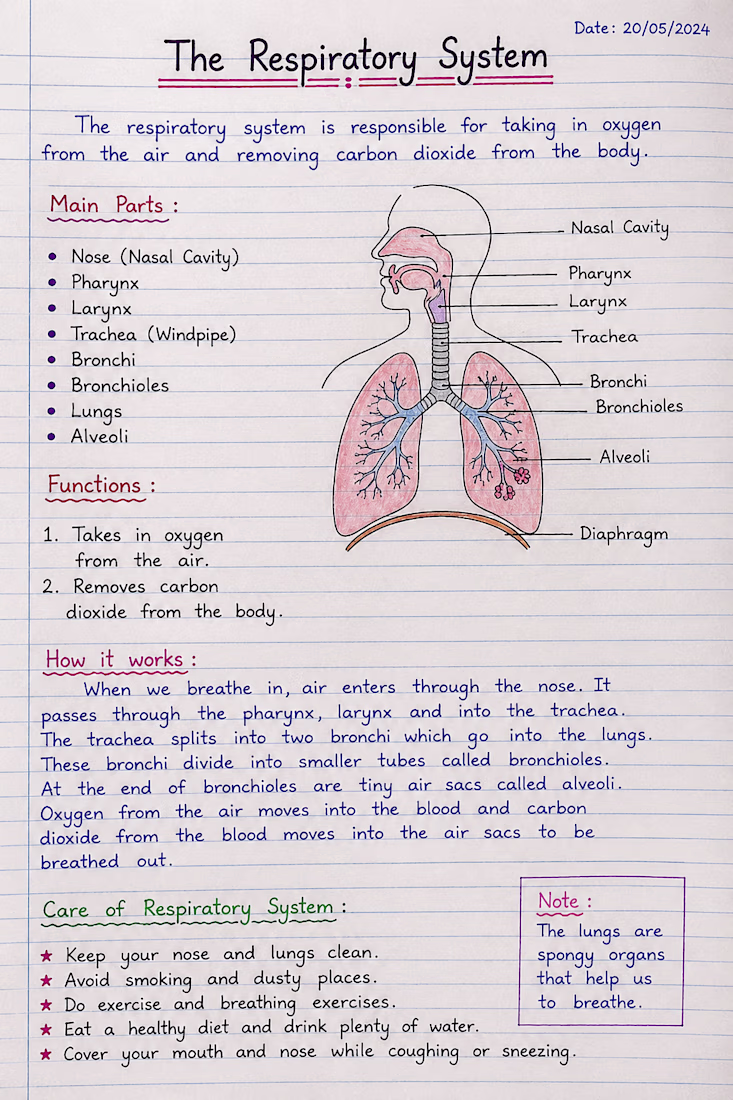 Date: 20/05/2024
The Respiratory System
The respiratory system is responsible for taking in oxygen
from the air and removing carbon dioxide from the body.
Main Parts :
• Nose (Nasal Cavity)
• Pharynx
• Larynx
• Trachea (Windpipe)
• Bronchi
• Bronchioles
• Lungs
• Alveoli
Nasal Cavity
Pharynx
Larynx
Trachea
Bronchi
Bronchioles
Alveoli
Diaphragm
Functions :
1. Takes in oxygen
from the air.
2. Removes carbon
dioxide from the body.
How it works :
When we breathe in, air enters through the nose. It
passes through the pharynx, larynx and into the trachea.
The trachea splits into two bronchi which go into the lungs.
These bronchi divide into smaller tubes called bronchioles.
At the end of bronchioles are tiny air sacs called alveoli.
Oxygen from the air moves into the blood and carbon
dioxide from the blood moves into the air sacs to be
breathed out.
Care of Respiratory System :
★ Keep your nose and lungs clean.
★ Avoid smoking and dusty places.
★ Do exercise and breathing exercises.
★ Eat a healthy diet and drink plenty of water.
★ Cover your mouth and nose while coughing or sneezing.
Note :
The lungs are
spongy organs
that help us
to breathe.